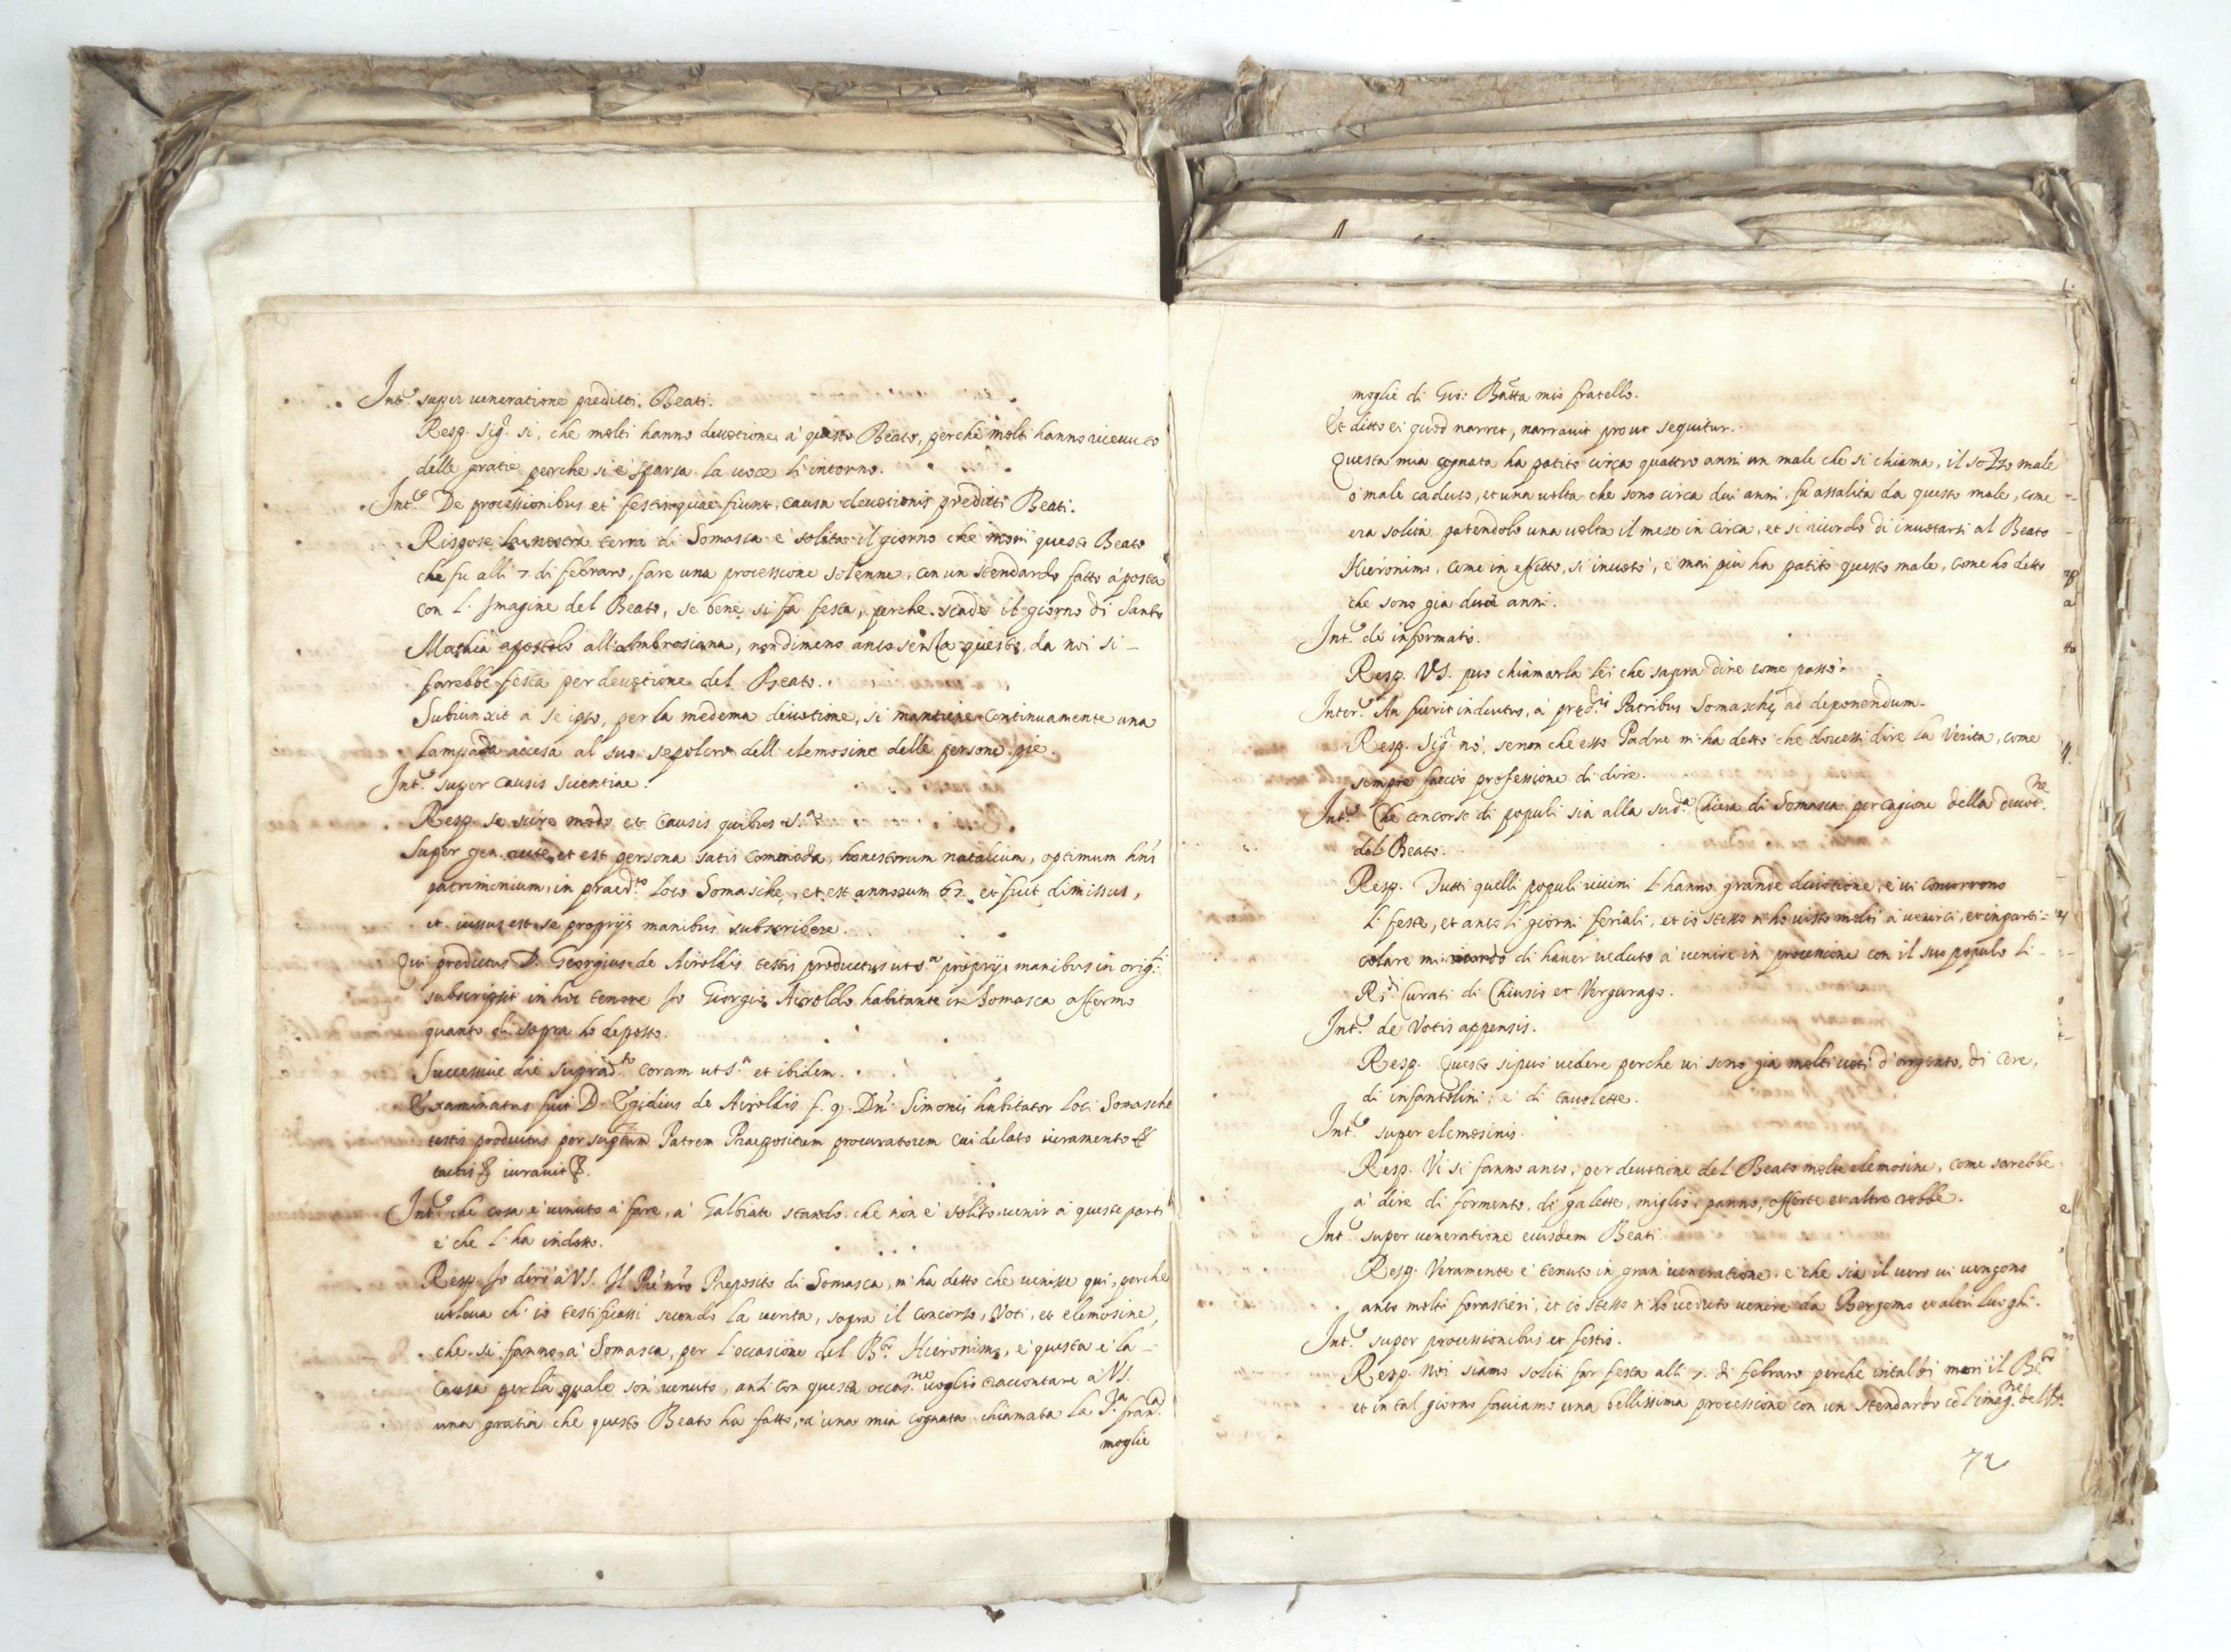 Int.º super ueneratione predicti Beati.
Resp. Sig.r si, che molti hanno deuotione à questo Beato, perche molti hanno riceuuto
delle gratie perche si è sparsa la uoce li intorno.
Int.º De processionibus et festis quae fiunt causa deuotionis predicti Beati.
Rispose la nostra terra di Somasca è solita il giorno che morì questo Beato
che fu alli 7. di febraro, fare una processione solenne, con un stendardo fatto à posta
con l'Imagine del Beato, se bene si fa festa, perche scade il giorno di Santo
Mathia apostolo all'Ambrosiana, nondimeno anco senza questo, da noi si
farebbe festa per deuotione del Beato.
Subiunxit à se ipso, per la medema deuotione, si mantiene continuamente una
lampada accesa al suo sepolcro dell'elemosine delle persone pie.
Int.º super causis scientiae.
Resp. se scire modo et causis quibus s.a
Super gen. recte, et est persona satis commoda, honestorum natalium, optimum hns
patrimonium, in praed.to loco Somaschę, et est annorum 67. et fuit dimissus,
et iussus est se proprijs manibus subscribere.
Qui predictus D. Georgius de Airoldis testis productus ut s.a proprijs manibus in orig.li
subscripsit in hoc tenore Io Giorgio Airoldo habitante in Somasca affermo
quanto di sopra ho deposto.
Successiue die suprad.to coram ut s.a et ibidem.
Examinatus fuit D. Egidius de Airoldis f. q. Dni Simonis habitator loci Somaschę
testis productus per suptum Patrem Praepositum procuratorem cui delato iuramento &
tactis & iurauit &.
Int.º che cosa è uenuto à fare, à Galbiate stando che non è solito uenir à queste parti
e che l'ha indotto.
Resp. Io dirò à VS. Il Pre nro Preposito di Somasca, m'ha detto che uenisse qui, perche
uoleua ch'io testificassi secondo la uerita, sopra il concorso, Voti, et elemosine,
che si fanno à Somasca, per l'occasione del B.to Hieronimo, e questa è la
causa per la quale son uenuto, anzi con questa occas.ne uoglio raccontare à VS.
una gratia che questo Beato ha fatto, à una mia cognata chiamata la S.ra Fran.ca
moglie
moglie di Gio: Batta mio fratello.
Et dicto ei quod narret, narrauit prout sequitur.
Questa mia cognata ha patito circa quattro anni un male che si chiama, il sozzo male
ò male caduco, et una uolta che sono circa dui anni, fu assalita da questo male, come
era solita patendolo una uolta il mese in circa, et si ricordò di inuotarsi al Beato
Hieronimo, come in effetto, si inuotò, e mai più ha patito questo male, come ho detto
che sono gia dui anni.
Int.º de informatis.
Resp. VS. può chiamarla lei che saprà dire come passò.
Inter.º An fuerit inductus, à pred.is Patribus Somaschę ad deponendum.
Resp. Sig.r nò, se non che esso Padre m'ha detto che douessi dire la Verita, come
sempre faccio professione di dire.
Int.º Che concorso di populi sia alla sud.a Chiesa di Somasca per cagione della deuot.ne
del Beato.
Resp. Tutti quelli populi uicini l'hanno grande deuotione, e ui concorrono
le feste, et anco li giorni feriali, et io stesso n'ho uisto molti à uenirci, et in parti-
colare mi ricordo di hauer ueduto à uenire in processione con il suo populo li
R.di Curati di Chiuso et Vergurago.
Int.º de Votis appensis.
Resp. Questo si può uedere perche ui sono gia molti uoti d'argento, di cere,
di infantolini, e di tauolette.
Int.º super elemosinis.
Resp. Vi si fanno anco, per deuotione del Beato molte elemosine, come sarebbe
à dire di formento, di galette, miglio, panno, offerte et altre robbe.
Int.º super ueneratione eiusdem Beati
Resp. Veramente è tenuto in gran ueneratione, e che sia il uero ui uengono
anco molti forastieri, et io stesso n'ho ueduto uenire da Bergomo et altri luoghi.
Int.º super processionibus et festis.
Resp. Noi siamo soliti far festa alli 7. di febraro perche in tal dì morì il B.to
et in tal giorno facciamo una bellissima processione con un stendardo cō l'imag.ne del B.to
72